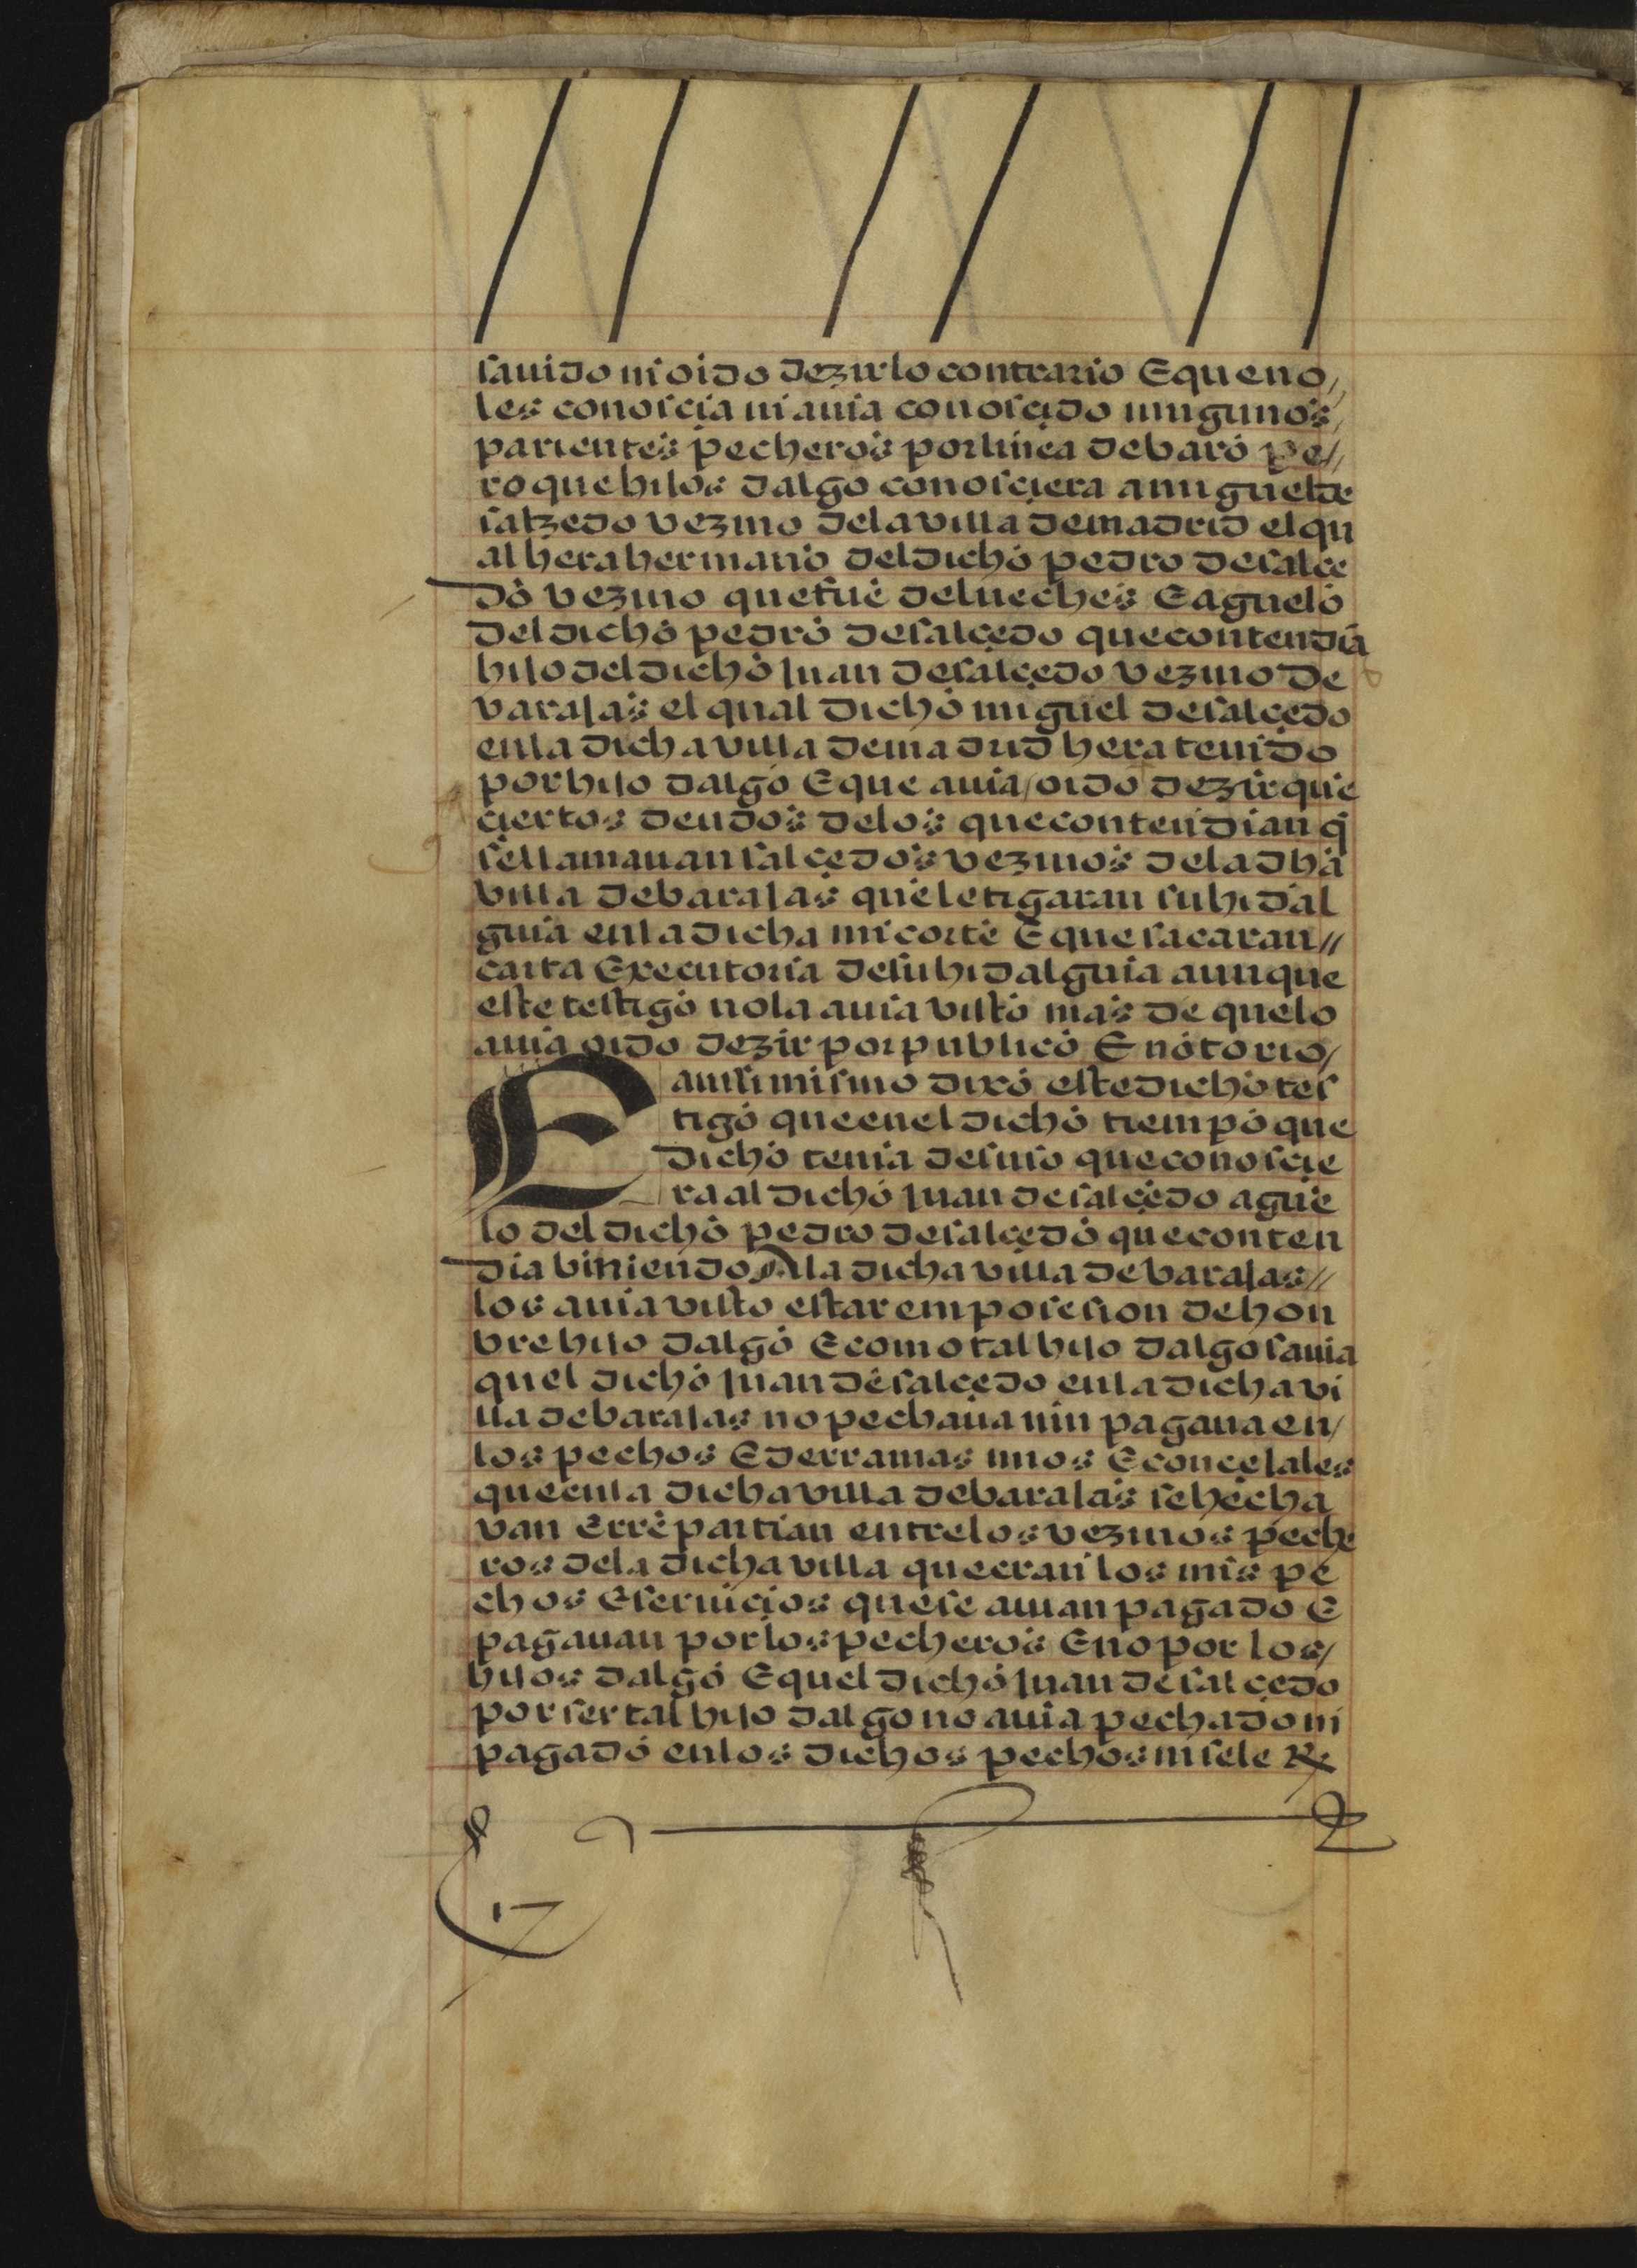 sauido ni oido dezir lo contrario E que no /
les conoscia ni auia conoscido ningunos /
parientes pecheros por linea de baró pe//
ro que hijos dalgo conosciera a miguel de
salzedo vezino de la villa de madrid el qu
al hera hermano del dicho pedro de salçe
do vezino que fue de lueches E aguelo
del dicho pedro de salçedo que contendia
hijo del dicho Juan de salçedo vezino de
varajas el qual dicho miguel de salçedo
en la dicha villa de madrid hera tenido
por hijo dalgo E que auia / oido dezir que
çiertos deudos de los que contendian q̃
se llamauan salçedos vezinos de la dha
villa de barajas que letigaran su hidal
guia en la dicha mi corte E que sacaran //
carta Executoria de su hidalguia aunque
este testigo no la auia visto mas de que lo
auia oido dezir por publico E notorio /
E ansimismo dixo este dicho tes
tigo que en el dicho tiempo que
dicho tenia de suso que conoscie
ra al dicho Juan de salçedo ague
lo del dicho pedro de salçedo que conten
dia biniendo A la dicha villa de barajas //
los auia visto estar em posesion de hon
bre hijo dalgo E como tal hijo dalgo sauia
quel dicho Juan de salçedo en la dicha vi
lla de barajas no pechaua nin pagaua en /
los pechos E derramas mios E conçejales
que en la dicha villa de barajas se hecha
van E rrepartian entre los vezinos peche
ros de la dicha villa que eran los mis pe
chos E seruiçios que se auian pagado E
pagauan por los pecheros E no por los /
hijos dalgo E quel dicho Juan de salçedo
por ser tal hijo dalgo no auia pechado ni
pagado en los dichos pechos ni se le Re